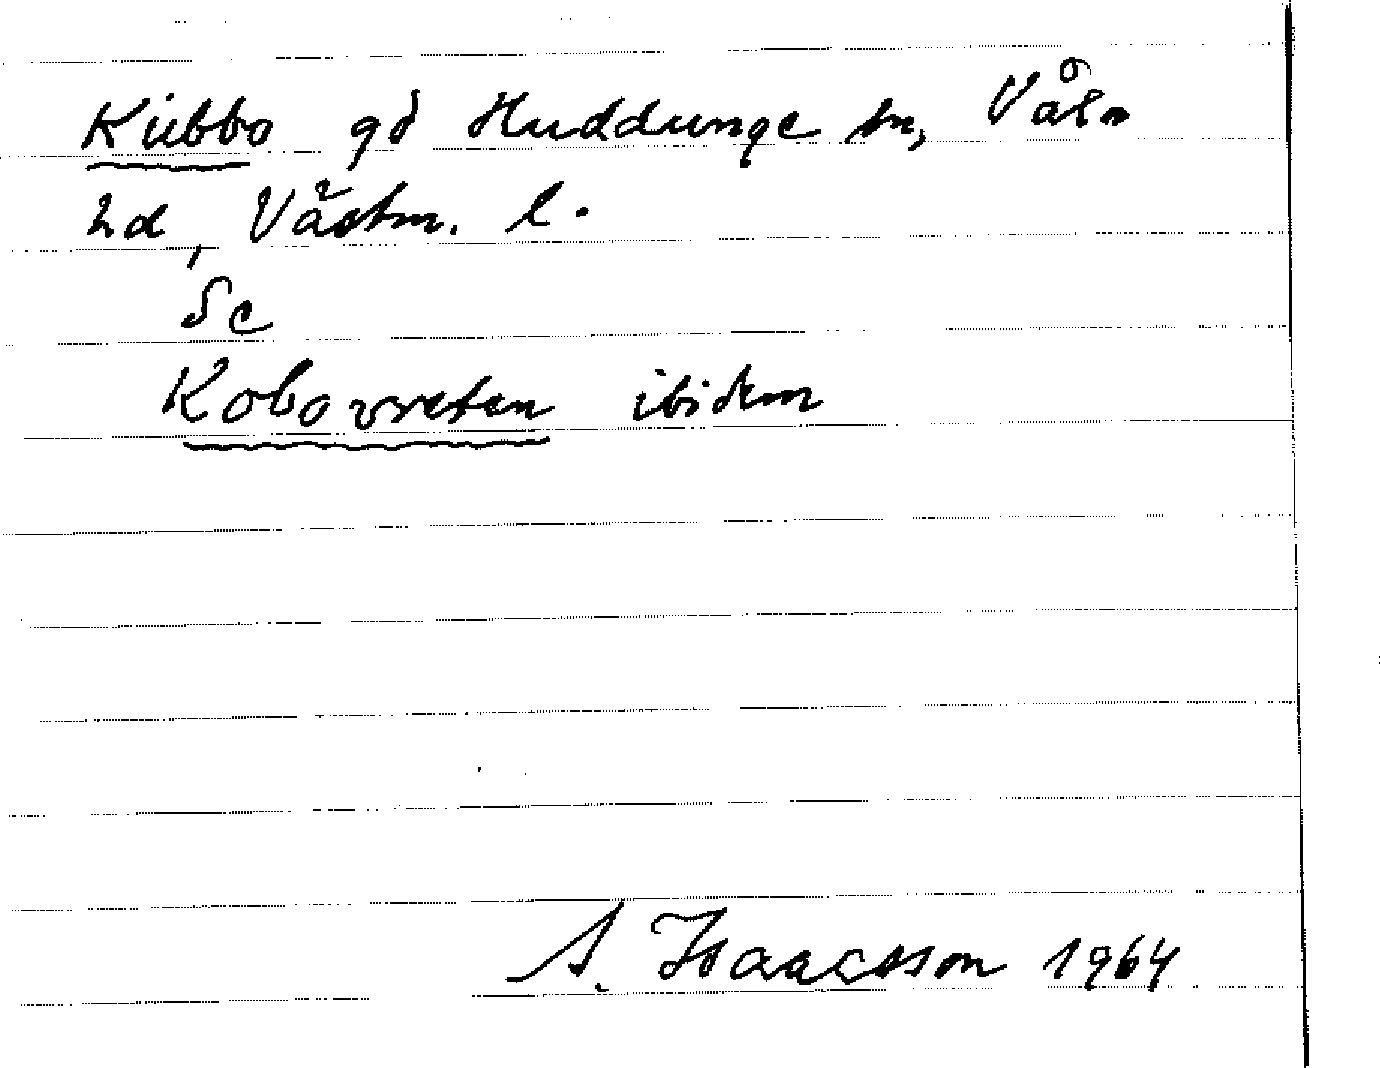 Kubbo gd Huddunge sn, Våla
hd, Västm. l.
Se
Kobovreten ibidem
A. Isaacsson 1964